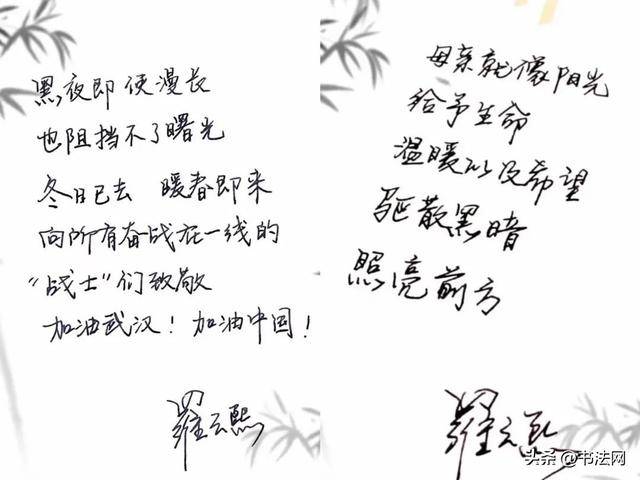 黑夜即使漫长
也阻挡不了曙光
冬日已去 暖春即来
向所有奋战在一线的
“战士”们致敬
加油武汉！加油中国！
罗云熙
母亲就像阳光
给予生命
温暖以及希望
驱散黑暗
照亮前方
罗云熙
头条 @书法网